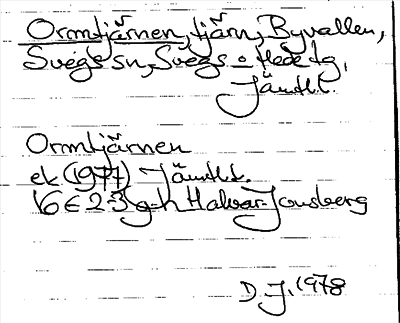 Ormtjärnen, tjärn, Byvallen,
Svegs sn, Svegs o Hede tg,
Jämtl.
Ormtjärnen
ek (1977) Jämtl.
16E 2-3 g-h Halvar-Jonsberg
D. J. 1978